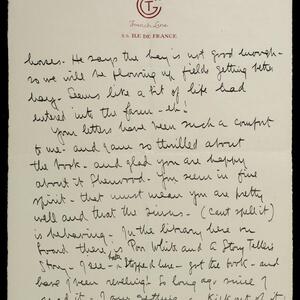 French Line
S.S. ILE DE FRANCE.
horses. He says the hay is not good enough -
so we will be plowing up fields getting better
hay. Seems like a bit of life had
entered into the farm - eh!
Your letters have been such a comfort
to me - and I am so thrilled about
the book - and glad you are happy
about it Sherwood. You seem in fine
spirit - that must mean you are pretty
well and that the sinus - (can't spell it)
is behaving - In the library here on
board there is Poor White and a Story Teller's
Story - I see - I stopped here - got the book - and
have been reveling. So long ago since I
read it - I am getting a kick out of it